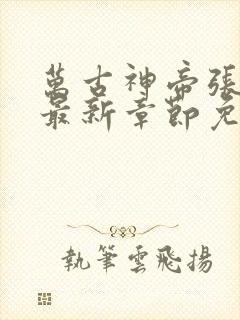 萬古神帝張
最新章節免
執筆雲飛揚